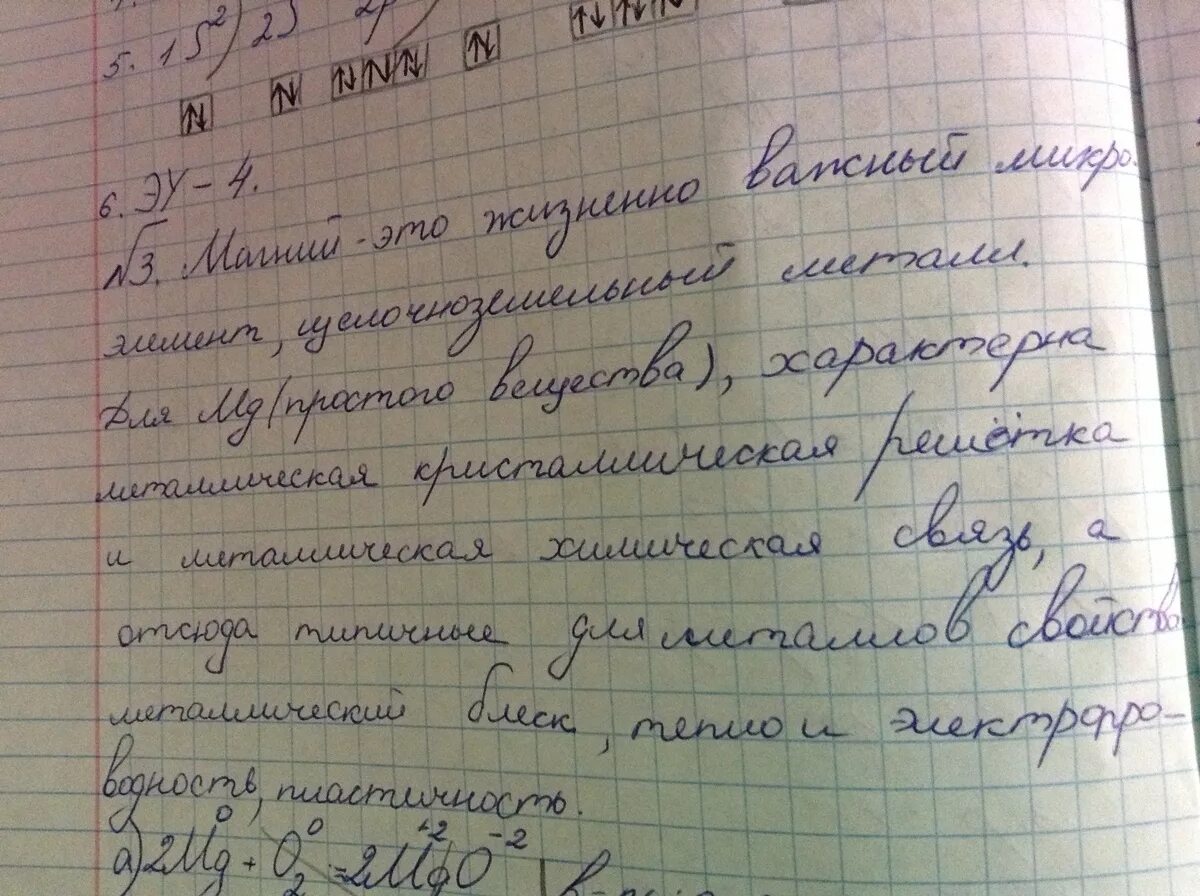 5. 1S²) 2S 2p
↑↓ ↑↓ ↑↓ ↑↓ ↑↓ ↑↓ ↑↓ ↑↓ ↑↓
6. ЭУ – 4.
№3. Магний - это жизненно важный микро-
элемент, щелочноземельный металл.
Для Mg (простого вещества), характерна
металлическая кристаллическая решётка
и металлическая химическая связь, а
отсюда типичные для металлов свойства
металлический блеск, тепло и электропро-
водность, пластичность.
а) 2Mg⁰ + O₂⁰ = 2Mg⁺²O⁻²